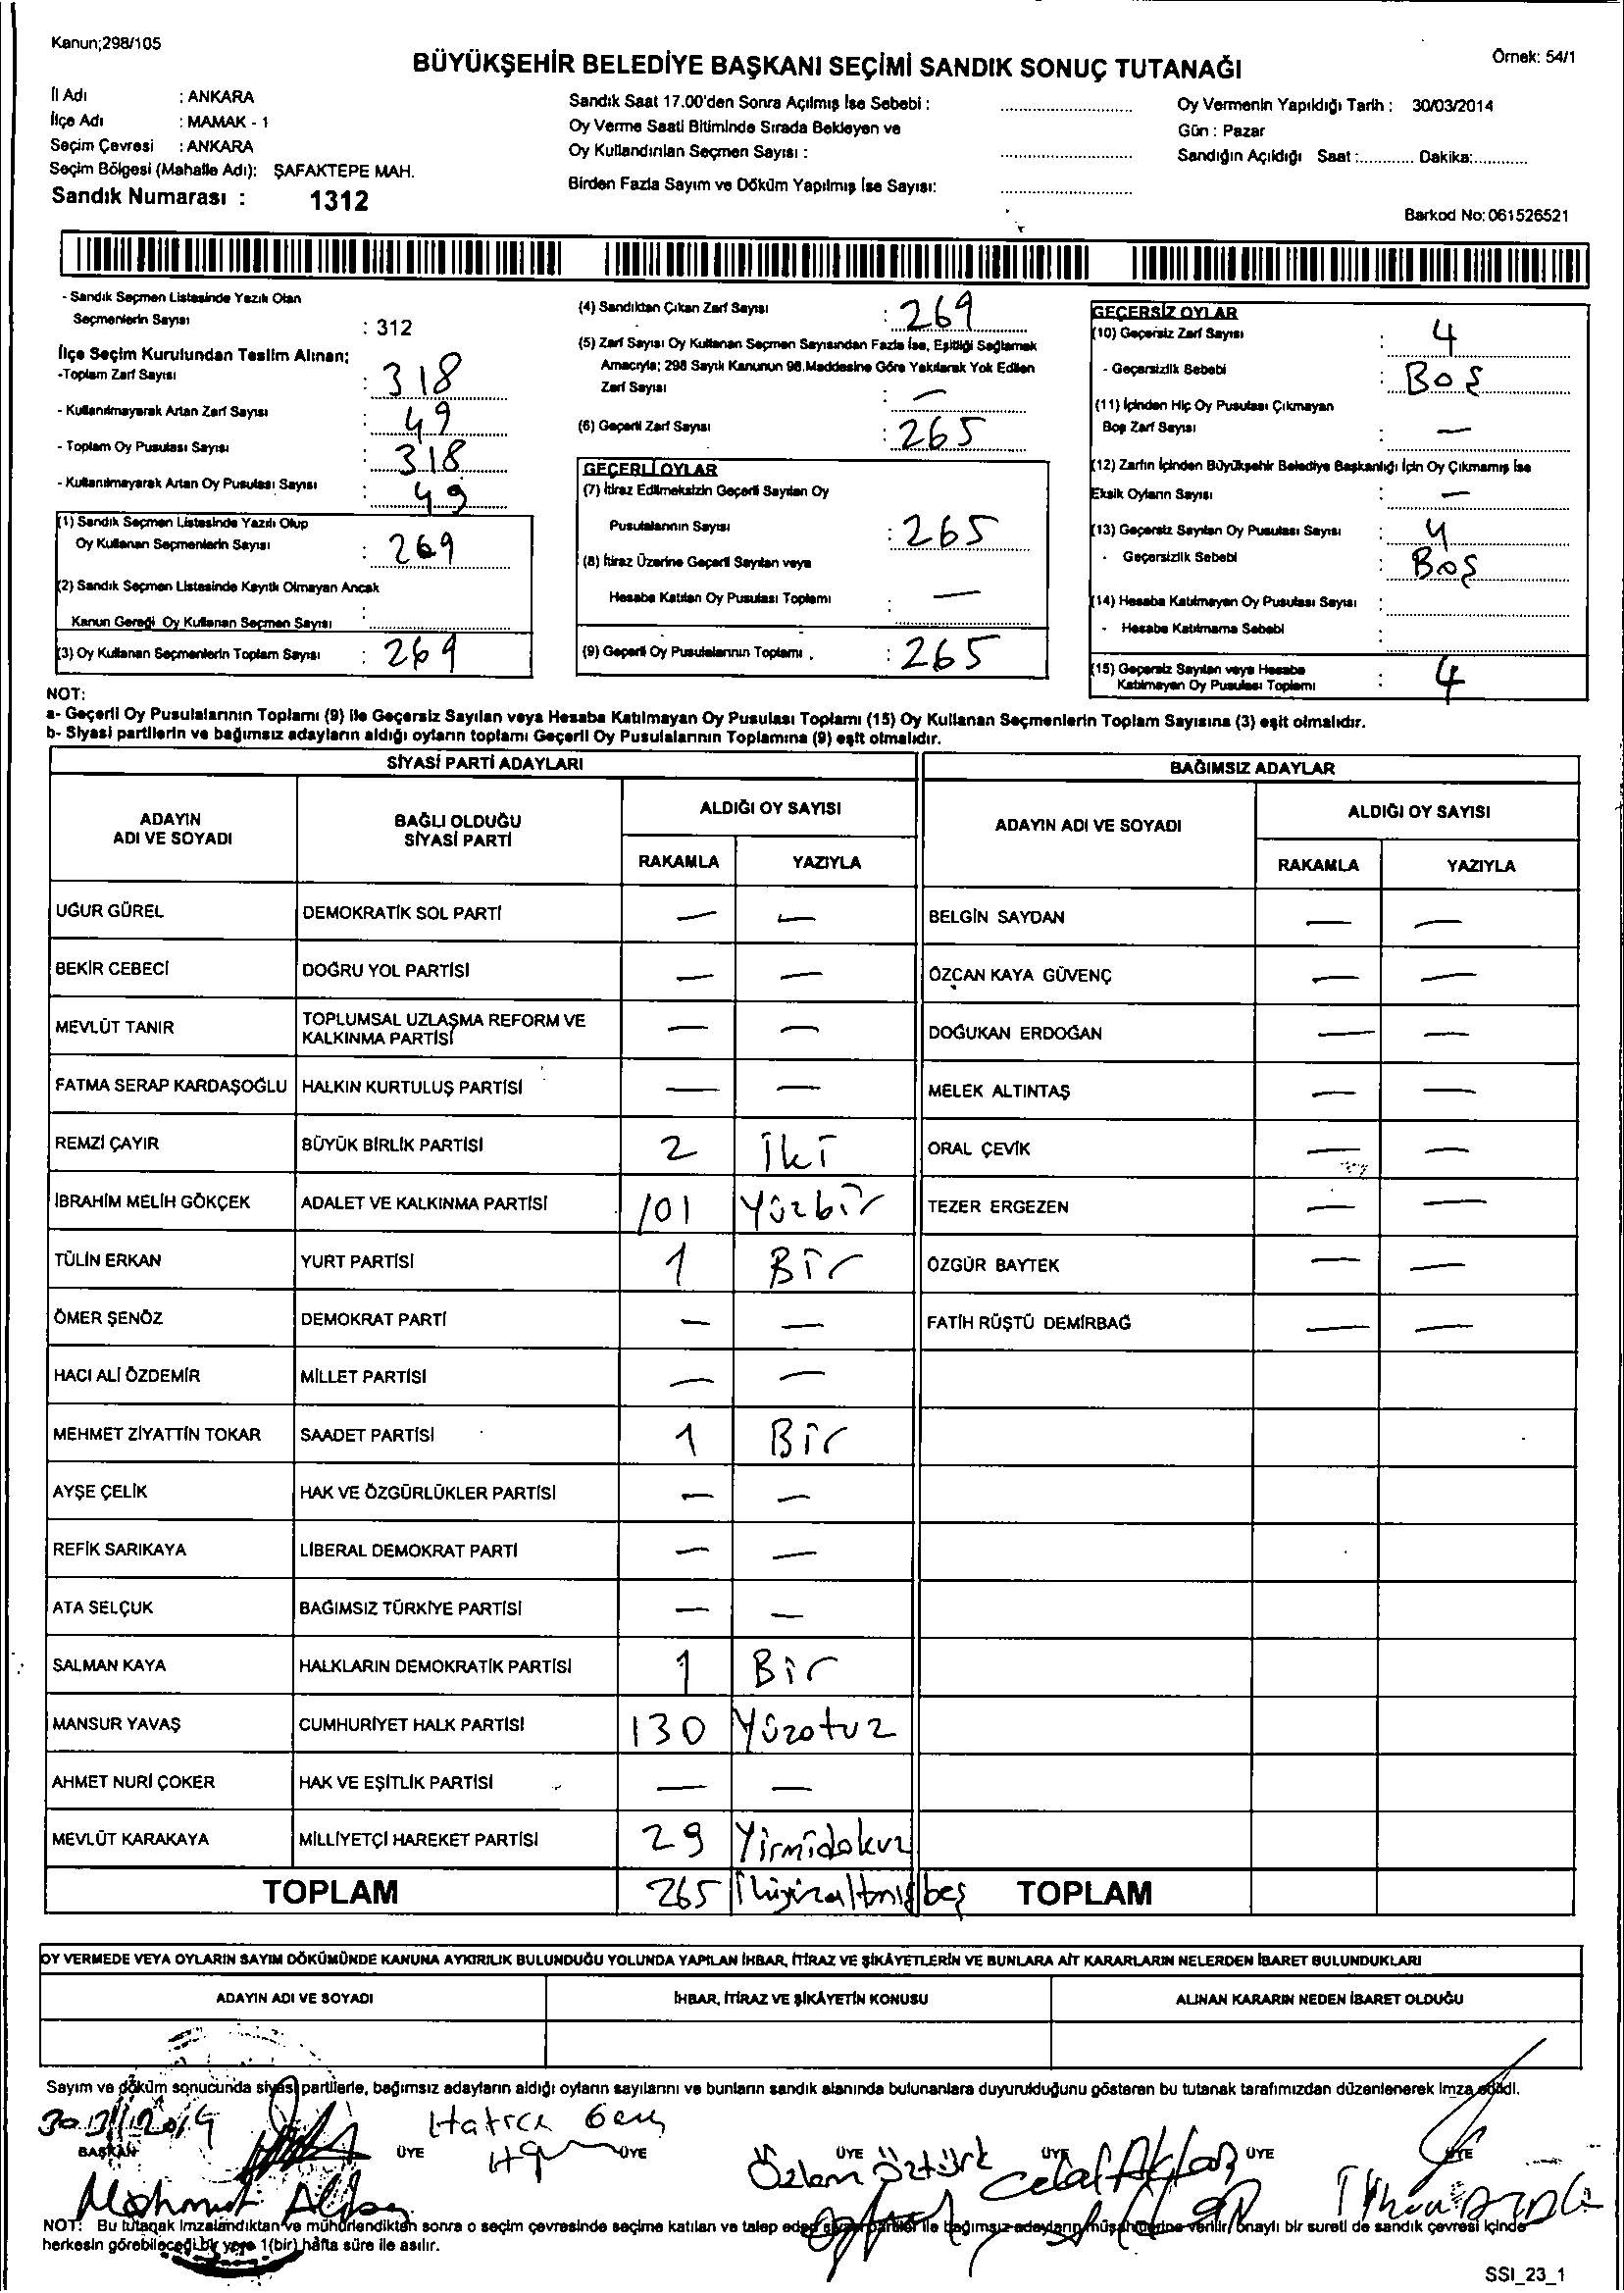 Kanun;298/105
Örnek: 54/1
BÜYÜKŞEHİR BELEDİYE BAŞKANI SEÇİMİ SANDIK SONUÇ TUTANAĞI
İl Adı : ANKARA
İlçe Adı : MAMAK - 1
Seçim Çevresi : ANKARA
Seçim Bölgesi (Mahalle Adı): ŞAFAKTEPE MAH.
Sandık Numarası : 1312
Sandık Saat 17.00'den Sonra Açılmış İse Sebebi :
Oy Verme Saati Bitiminde Sırada Bekleyen ve
Oy Kullandırılan Seçmen Sayısı :
Birden Fazla Sayım ve Döküm Yapılmış İse Sayısı:
Oy Vermenin Yapıldığı Tarih : 30/03/2014
Gün : Pazar
Sandığın Açıldığı Saat :............ Dakika:............
Barkod No: 061526521
- Sandık Seçmen Listesinde Yazılı Olan
Seçmenlerin Sayısı : 312
İlçe Seçim Kurulundan Teslim Alınan;
-Toplam Zarf Sayısı : 318
- Kullanılmayarak Artan Zarf Sayısı : 49
- Toplam Oy Pusulası Sayısı : 318
- Kullanılmayarak Artan Oy Pusulası Sayısı : 49
(1) Sandık Seçmen Listesinde Yazılı Olup
Oy Kullanan Seçmenlerin Sayısı : 269
(2) Sandık Seçmen Listesinde Kayıtlı Olmayan Ancak
Kanun Gereği Oy Kullanan Seçmen Sayısı :
(3) Oy Kullanan Seçmenlerin Toplam Sayısı : 269
(4) Sandıktan Çıkan Zarf Sayısı : 269
(5) Zarf Sayısı Oy Kullanan Seçmen Sayısından Fazla İse, Eşitliği Sağlamak
Amacıyla; 298 Sayılı Kanunun 98.Maddesine Göre Yakılarak Yok Edilen
Zarf Sayısı : —
(6) Geçerli Zarf Sayısı : 265
GEÇERLİ OYLAR
(7) İtiraz Edilmeksizin Geçerli Sayılan Oy
Pusulalarının Sayısı : 265
(8) İtiraz Üzerine Geçerli Sayılan veya
Hesaba Katılan Oy Pusulası Toplamı : —
(9) Geçerli Oy Pusulalarının Toplamı . : 265
GEÇERSİZ OYLAR
(10) Geçersiz Zarf Sayısı : 4
- Geçersizlik Sebebi : Boş
(11) İçinden Hiç Oy Pusulası Çıkmayan
Boş Zarf Sayısı : —
(12) Zarfın İçinden Büyükşehir Belediye Başkanlığı İçin Oy Çıkmamış İse
Eksik Oyların Sayısı : —
(13) Geçersiz Sayılan Oy Pusulası Sayısı : 4
- Geçersizlik Sebebi : Boş
(14) Hesaba Katılmayan Oy Pusulası Sayısı :
- Hesaba Katılmama Sebebi :
(15) Geçersiz Sayılan veya Hesaba
Katılmayan Oy Pusulası Toplamı : 4
NOT:
a- Geçerli Oy Pusulalarının Toplamı (9) ile Geçersiz Sayılan veya Hesaba Katılmayan Oy Pusulası Toplamı (15) Oy Kullanan Seçmenlerin Toplam Sayısına (3) eşit olmalıdır.
b- Siyasi partilerin ve bağımsız adayların aldığı oyların toplamı Geçerli Oy Pusulalarının Toplamına (9) eşit olmalıdır.
SİYASİ PARTİ ADAYLARI
BAĞIMSIZ ADAYLAR
ADAYIN ADI VE SOYADI
BAĞLI OLDUĞU SİYASİ PARTİ
ALDIĞI OY SAYISI
RAKAMLA YAZIYLA
ADAYIN ADI VE SOYADI
ALDIĞI OY SAYISI
RAKAMLA YAZIYLA
UĞUR GÜREL DEMOKRATİK SOL PARTİ — — BELGİN SAYDAN — —
BEKİR CEBECİ DOĞRU YOL PARTİSİ — — ÖZCAN KAYA GÜVENÇ — —
MEVLÜT TANIR TOPLUMSAL UZLAŞMA REFORM VE KALKINMA PARTİSİ — — DOĞUKAN ERDOĞAN — —
FATMA SERAP KARDAŞOĞLU HALKIN KURTULUŞ PARTİSİ — — MELEK ALTINTAŞ — —
REMZİ ÇAYIR BÜYÜK BİRLİK PARTİSİ 2 İki ORAL ÇEVİK — —
İBRAHİM MELİH GÖKÇEK ADALET VE KALKINMA PARTİSİ 101 Yüzbir TEZER ERGEZEN — —
TÜLİN ERKAN YURT PARTİSİ 1 Bir ÖZGÜR BAYTEK — —
ÖMER ŞENÖZ DEMOKRAT PARTİ — — FATİH RÜŞTÜ DEMİRBAĞ — —
HACI ALİ ÖZDEMİR MİLLET PARTİSİ — —
MEHMET ZİYATTİN TOKAR SAADET PARTİSİ 1 Bir
AYŞE ÇELİK HAK VE ÖZGÜRLÜKLER PARTİSİ — —
REFİK SARIKAYA LİBERAL DEMOKRAT PARTİ — —
ATA SELÇUK BAĞIMSIZ TÜRKİYE PARTİSİ — —
SALMAN KAYA HALKLARIN DEMOKRATİK PARTİSİ 1 Bir
MANSUR YAVAŞ CUMHURİYET HALK PARTİSİ 130 Yüzotuz
AHMET NURİ ÇOKER HAK VE EŞİTLİK PARTİSİ — —
MEVLÜT KARAKAYA MİLLİYETÇİ HAREKET PARTİSİ 29 Yirmidokuz
TOPLAM 265 İkiyüzaltmışbeş TOPLAM
OY VERMEDE VEYA OYLARIN SAYIM DÖKÜMÜNDE KANUNA AYKIRILIK BULUNDUĞU YOLUNDA YAPILAN İHBAR, İTİRAZ VE ŞİKÂYETLERİN VE BUNLARA AİT KARARLARIN NELERDEN İBARET BULUNDUKLARI
ADAYIN ADI VE SOYADI İHBAR, İTİRAZ VE ŞİKÂYETİN KONUSU ALINAN KARARIN NEDEN İBARET OLDUĞU
Sayım ve döküm sonucunda siyasi partilerle, bağımsız adayların aldığı oyların sayılarını ve bunların sandık alanında bulunanlara duyurulduğunu gösteren bu tutanak tarafımızdan düzenlenerek imza edildi.
30.3.2014
Hatice
BAŞKAN ÜYE ÜYE ÜYE ÜYE ÜYE ÜYE
Özlem Öztürk Celal
Mahmut
NOT: Bu tutanak imzalandıktan ve mühürlendikten sonra o seçim çevresinde seçime katılan ve talep eden siyasi partiler ile bağımsız adayların müşahitlerine verilir/ onaylı bir sureti de sandık çevresi içinde
herkesin görebileceği bir yere 1(bir) hafta süre ile asılır.
SSI_23_1